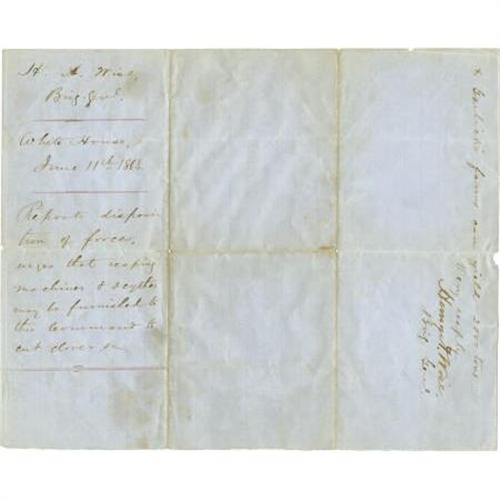 H. A. Wise,
Brig. Genl.
White House,
June 11th 1863
Reports disposi-
tion of forces,
urges that reaping
machines & scythes
may be furnished to
this command to
cut clover &c
& Garlick's farms can yield 200 tons
Very respy
Henry A. Wise
Brig. Genl.